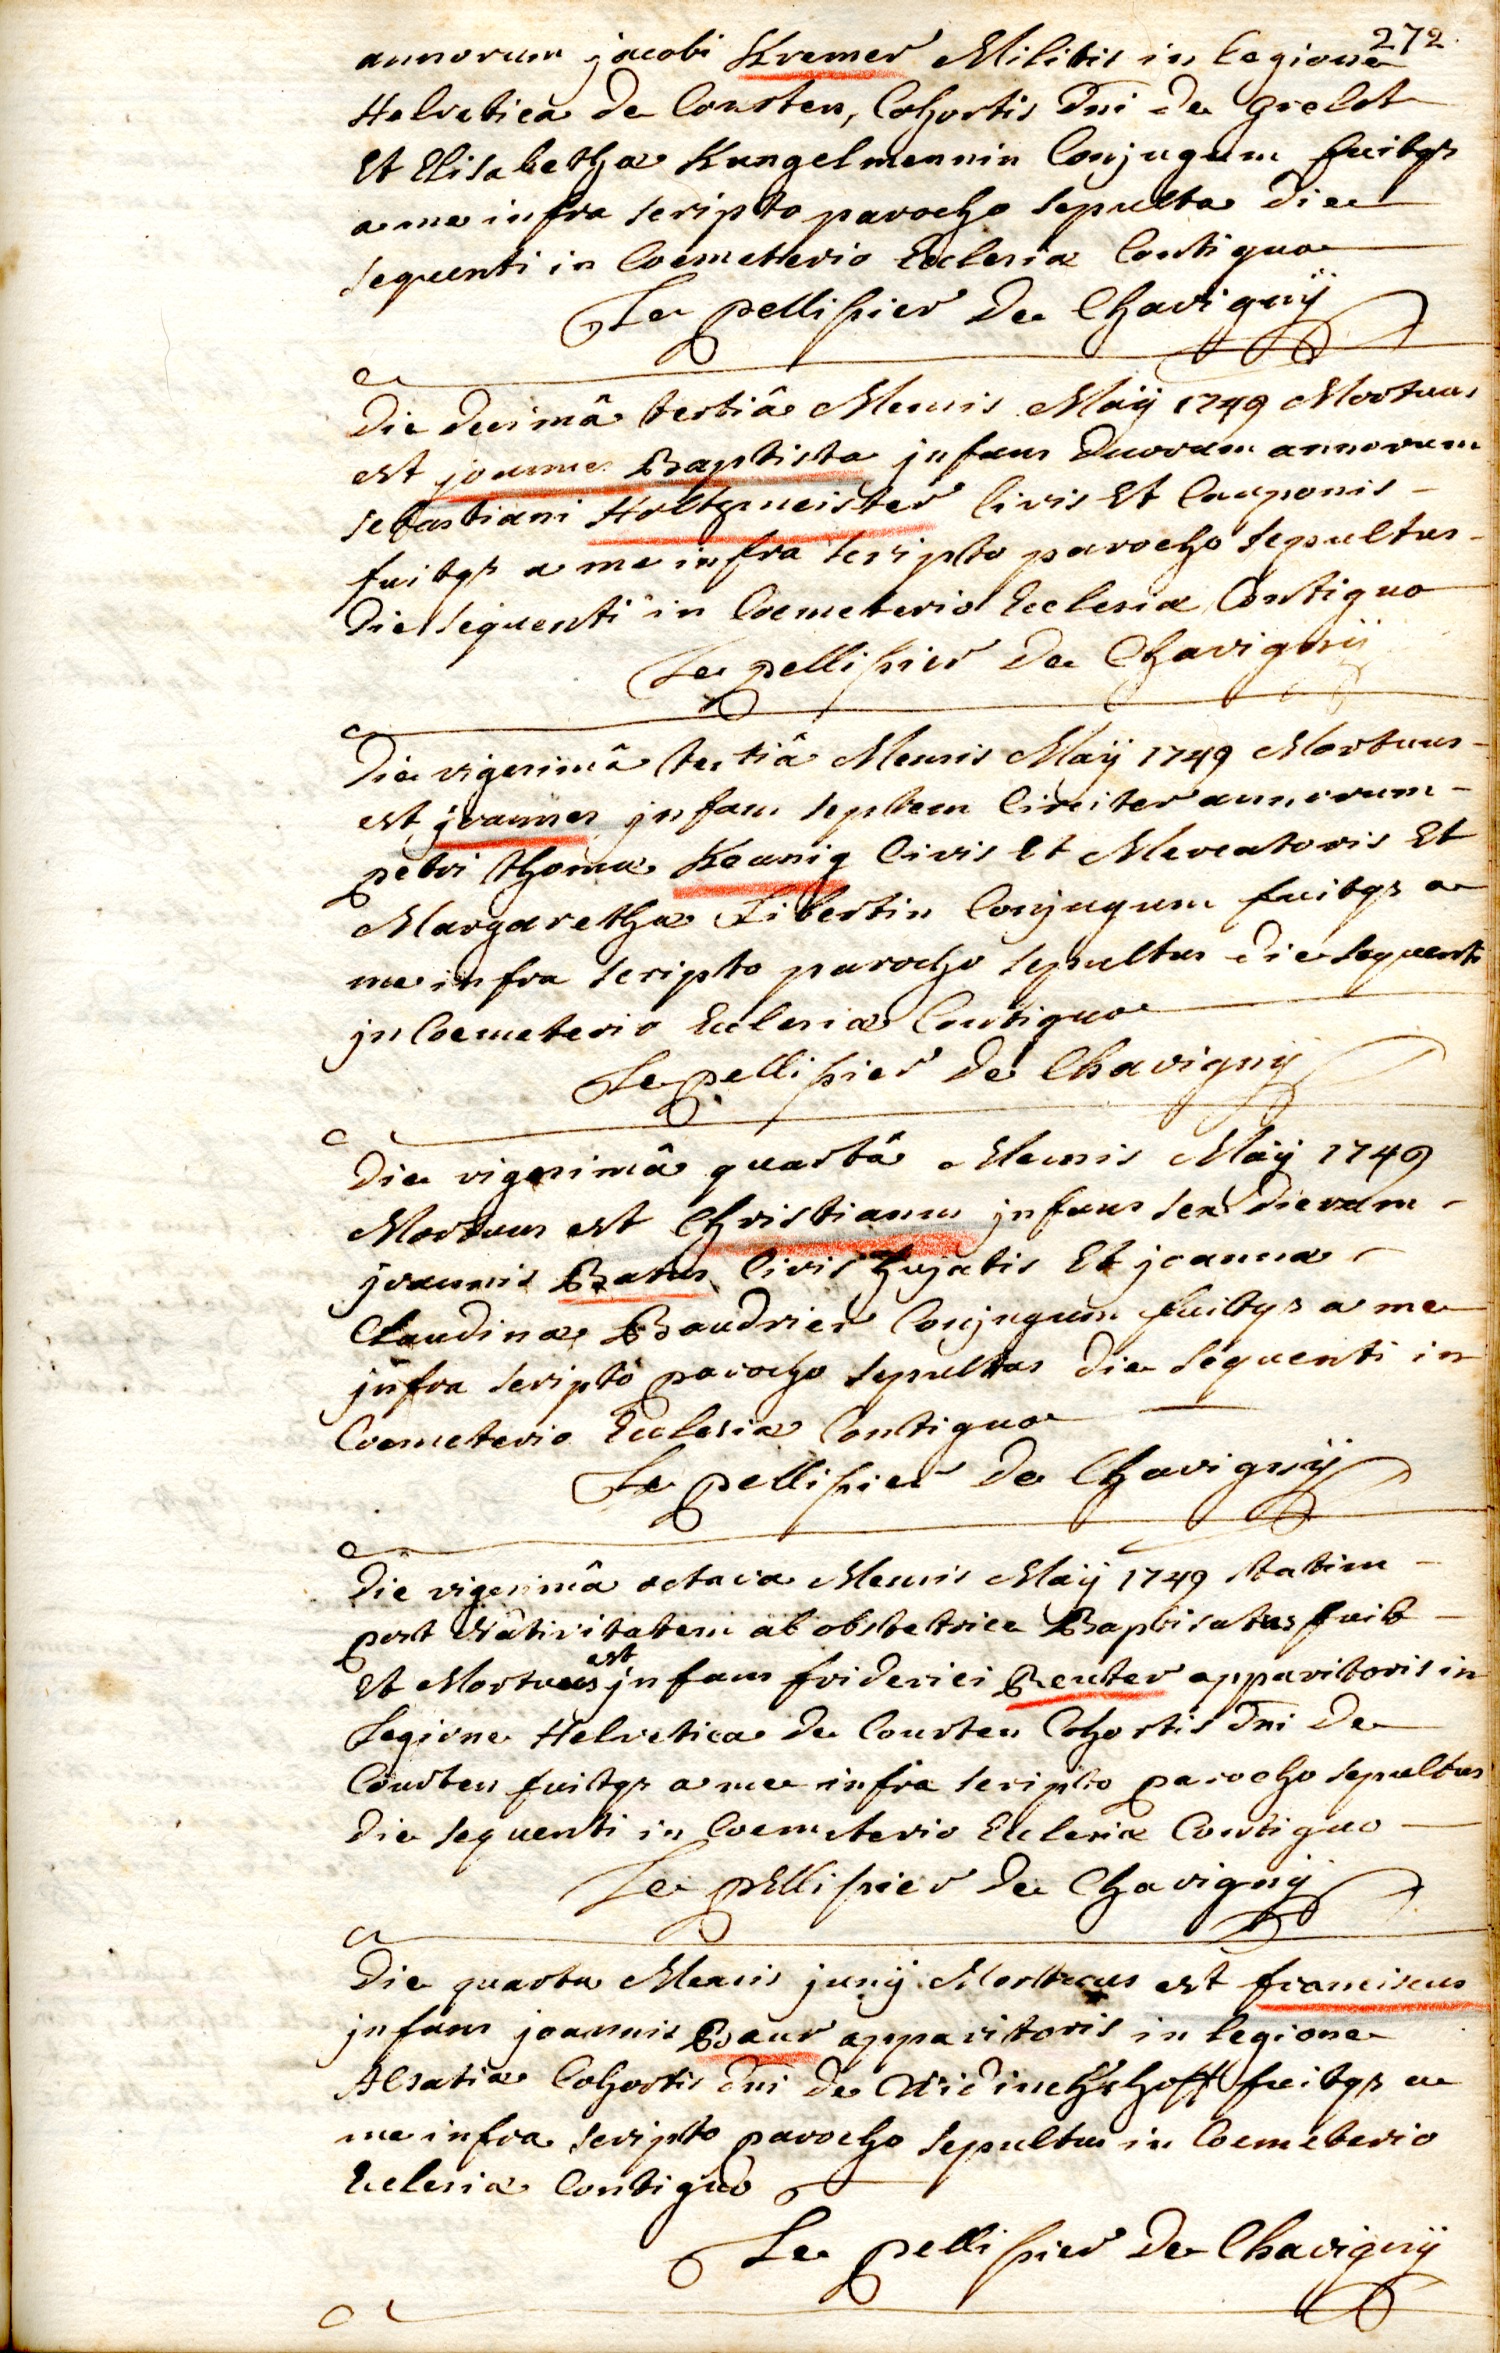 272.
annorum jacobi Kremer Militis in Legione
Helvetica de Courten, Cohortis Dni de Grelot
Et Elisabetha Kungelmannin Conjugum fuitqs
a me infra scripto parocho sepulta die
sequenti in Coemeterio Ecclesiæ Contiguo
Le pellissier De Chavignÿ
Die decimâ tertiâ Mensis Maÿ 1749 Mortuus
est joannes Baptista jnfans duorum annorum
sebastiani Holtzmeister Civis Et Cauponis
fuitqs a me infra scripto parocho sepultus
die sequenti in Coemeterio Ecclesiæ Contiguo
Le pellissier De Chavignÿ
Die vigesimâ tertiâ Mensis Maÿ 1749 Mortuus
est joannes jnfans septem Circiter annorum
petri thomæ Keunig Civis Et Mercatoris Et
Margaretha Libertin Conjugum fuitqs a
me infra scripto parocho sepultus die sequenti
jn Coemeterio Ecclesiæ Contiguo
Le pellissier De Chavignÿ
Die vigesimâ quartâ Mensis Maÿ 1749
Mortuus est Christianus jnfans sex dierum
joannis Batus Civis hujatis Et joanna
Claudinæ Baudrier Conjugum fuitqs a me
jnfra scripto parocho sepultus die sequenti in
Coemeterio Ecclesiæ Contiguo
Le pellissier De Chavignÿ
Die vigesimâ octava Mensis Maÿ 1749 statim
post Nâtivitatem ab obstetrice Baptisatus fuit
Et Mortuus est jnfans friderici Reuter apparitoris in
Legione Helvetica de Courten Cohortis Dni De
Courten fuitqs a me infra scripto parocho sepultus
die sequenti in Coemeterio Ecclesiæ Contiguo
Le pellissier De Chavignÿ
Die quarta Mensis junÿ Mortuus est franciscus
jnfans joannis Baur apparitoris in legione
Alsatiæ Cohortis Dni de fuitqs a
me infra scripto parocho sepultus in Coemeterio
Ecclesiæ Contiguo
Le pellissier De Chavignÿ